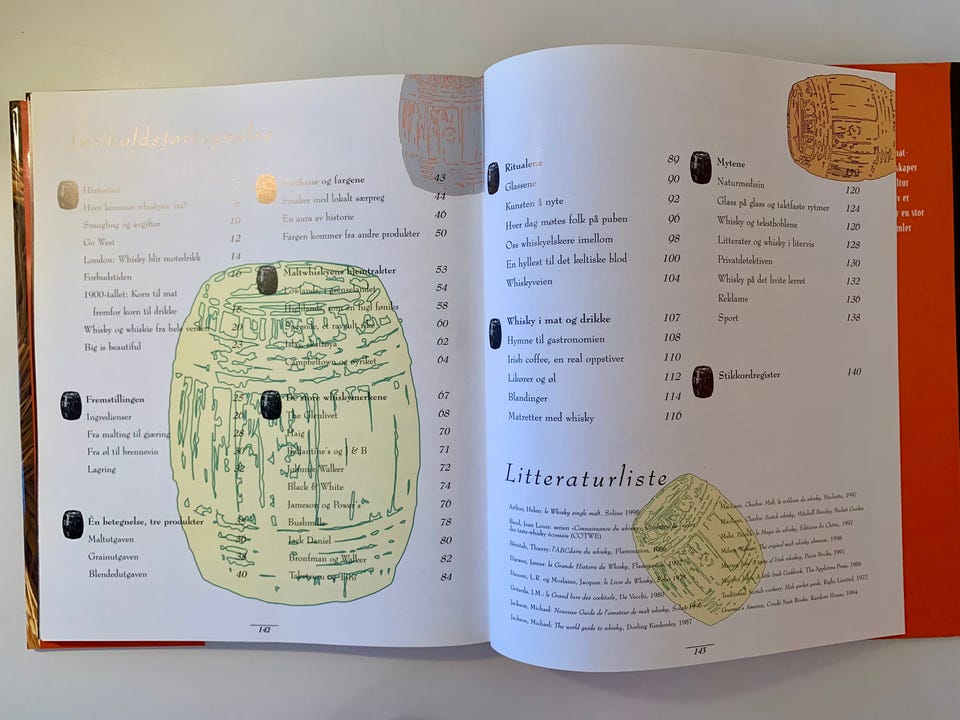 Innholdsfortegnelse
Historien
Hvor kommer whiskyen fra? 8
Smugling og avgifter 10
Go West 12
London: Whisky blir motedrikk 14
Forbudstiden 16
1900-tallet: Korn til mat
fremfor korn til drikke 18
Whisky og whiskie fra hele verden 20
Big is beautiful 23
Fremstillingen 25
Ingredienser 26
Fra malting til gjæring 28
Fra øl til brennevin 30
Lagring 32
Én betegnelse, tre produkter
Maltutgaven
Grainutgaven 38
Blendedutgaven 40
Smakene og fargene 43
Smaker med lokalt særpreg 44
En aura av historie 46
Fargen kommer fra andre produkter 50
Maltwhiskyens hjemtrakter 53
Lowlands, i grenselandet 54
Highlands, som en fugl føniks 58
Speyside, et ravgult rike 60
Islay, maltøya 62
Campbeltown og øyriket 64
De store whiskymerkene 67
The Glenlivet 68
Haig 70
Ballantine's og J & B 71
Johnnie Walker 72
Black & White 74
Jameson og Power's 76
Bushmills 78
Jack Daniel 80
Bronfman og Walker 82
Taketsuru og Torii 84
142
Ritualene 89
Glassene 90
Kunsten å nyte 92
Hver dag møtes folk på puben 96
Oss whiskyelskere imellom 98
En hyllest til det keltiske blod 100
Whiskyveien 104
Whisky i mat og drikke 107
Hymne til gastronomien 108
Irish coffee, en real oppstiver 110
Likører og øl 112
Blandinger 114
Matretter med whisky 116
Mytene 119
Naturmedisin 120
Glass på glass og taktfaste rytmer 124
Whisky og tekstboblene 126
Litterater og whisky i litervis 128
Privatdetektiven 130
Whisky på det hvite lerret 132
Reklame 136
Sport 138
Stikkordregister 140
Litteraturliste
Arthur, Helen: le Whisky single malt, Soline 1998
Baud, Jean Louis: serien «Connaissance du whisky,
des taste-whisky écossais (COTWE)
Bénitah, Thierry: l'ABCdaire du whisky, Flammarion, 1996
Darwen, James: la Grande Histoire du Whisky, Flammarion, 1992
Dawson, L.R. og Morlaine, Jacques: le Livre du Whisky, 1975
Gotarda, J.M.: le Grand livre des cocktails, De Vecchi, 1980
Jackson, Michael: Nouveau Guide de l'amateur de malt whisky, Solar 1996
Jackson, Michael: The world guide to whisky, Dorling Kindersley, 1987
MacLean, Charles: Malt, la noblesse du whisky, Hachette, 1997
MacLean, Charles: Scotch whisky, Mitchell Beazley, Pocket Guides
la Mapo du whisky, Éditions du Chêne, 1997
The original malt whisky almanac, 1998
of Irish whiskey, Prion Books, 1997
little Irish Cookbook, The Appletree Press, 1986
Traditional Scotch cookery: Hale pocket guide, Rigby Limited, 1972
America, Condé Nast Books, Random House, 1994
143
mat-
skaper
ltur
v er
r en stor
mler